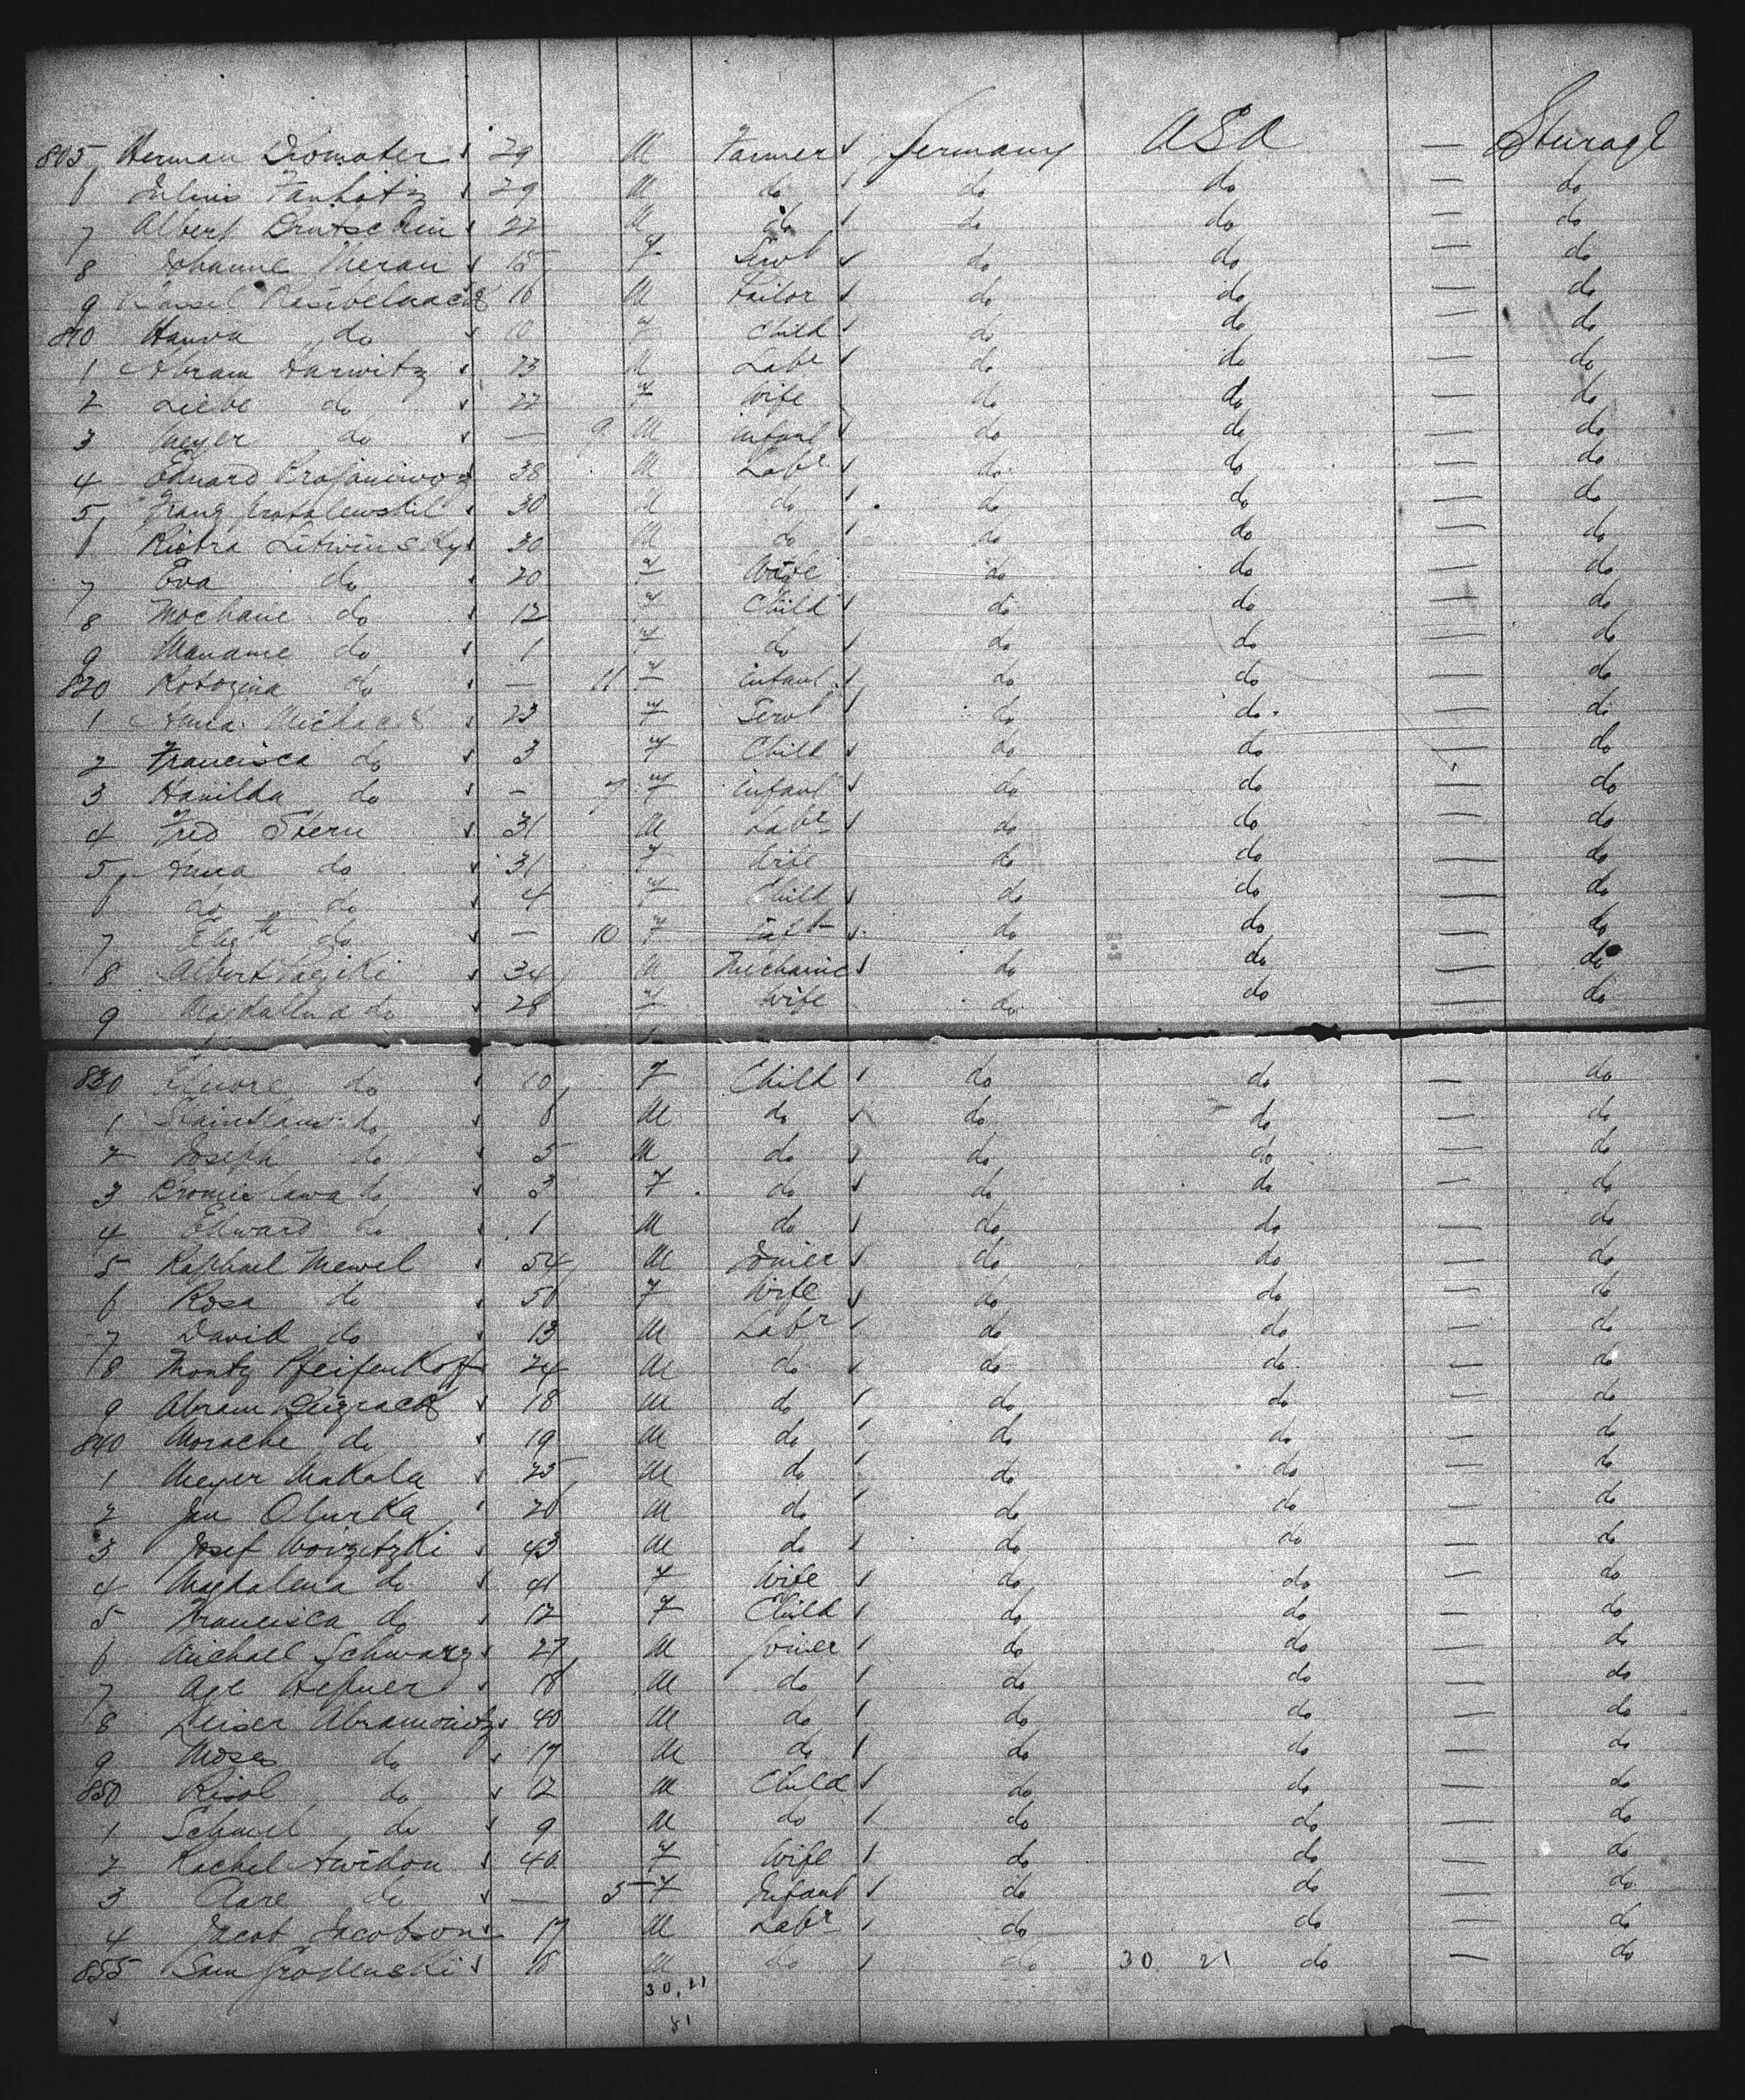 805 Herman Dromater 29 M Farmer Germany USA — Sturage
6 Julius 29 M do do do — do
7 Albert 22 M do do do — do
8 Johanne Meran 15 F Servt do do — do
9 16 M Tailor do do — do
810 Hanna do 10 F Child do do — do
1 Abram Hurwitz 23 M Labr do do — do
2 Liebe do 22 F Wife do do — do
3 Meyer do — 9 M infant do do — do
4 Eduard 38 M Labr do do — do
5 Franz 30 M do do do — do
6 Litwinsky 30 M do do do — do
7 Eva do 20 F Wife do do — do
8 Mochane do 12 F Child do do — do
9 Maname do 1 F do do do — do
820 do — 11 F infant do do — do
1 Anna 23 F Servt do do — do
2 Francisca do 3 F Child do do — do
3 Hanilda do — 7 F infant do do — do
4 Fred Stern 31 M Labr do do — do
5 Anna do 31 F Wife do do — do
6 do do 4 F Child do do — do
7 Elizth do — 10 F Inft do do — do
8 Albert 34 M Mechanic do do — do
9 Magdallena do 28 F Wife do do — do
830 do 10 F Child do do — do
1 do M do do do — do
2 Joseph do 5 M do do do — do
3 Bronislawa do 3 F do do do — do
4 Edward do 1 M do do do — do
5 Raphael Mewel 54 M Joiner do do — do
6 Rosa do 50 F Wife do do — do
7 David do 13 M Labr do do — do
8 Montz Pfeifenkopf 24 M do do do — do
9 Abram 18 M do do do — do
840 Morache do 19 M do do do — do
1 Meyer Makala 25 M do do do — do
2 Jan Olurka 20 M do do do — do
3 Josef Woizetzki 43 M do do do — do
4 Magdalena do 41 F Wife do do — do
5 Francisca do 12 F Child do do — do
6 Michael Schwarz 27 M Joiner do do — do
7 Hefner 18 M do do do — do
8 Leiser Abramowitz 40 M do do do — do
9 Moses do 17 M do do do — do
850 Risol do 12 M Child do do — do
1 Schmel do 9 M do do do — do
2 Rachel Awidon 40 F Wife do do — do
3 do — 5 F Infant do do — do
4 Jacob Jacobson 17 M Labr do do — do
855 Sam Grodenski 18 M do do 30 21 do — do
30.21
81